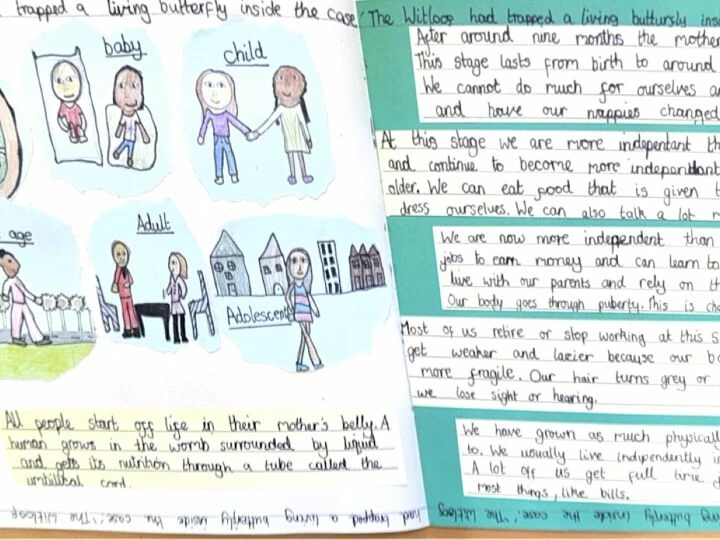 trapped a living butterfly inside the case,'The Witloof had trapped a living buttursly insi
baby
child
age
Adult
Adolescent
All people start off life in their mother's belly. A
human grows in the womb surrounded by liquid
and gets its nutrition through a tube called the
umbilital cord.
After around nine months the mother
This stage lasts from birth to around
We cannot do much for ourselves an
and have our nappies changed
At this stage we are more independant th
and continue to become more independant
older. We can eat food that is given t
dress ourselves. We can also talk a lot m
We are now more independent than
jobs to earn money and can learn to
live with our parents and rely on th
Our body goes through puberty. This is ch
Most of us retire or stop working at this s
get weaker and lazier because our bo
more fragile. Our hair turns grey or
we lose sight or hearing.
We have grown as much physicall
to. We usually live indipendently in
A lot off us get full time j
most things, like bills.
had trapped a living butterfly inside the case.' 'The Witloof
ing butterfly inside the case.' 'The Witloof